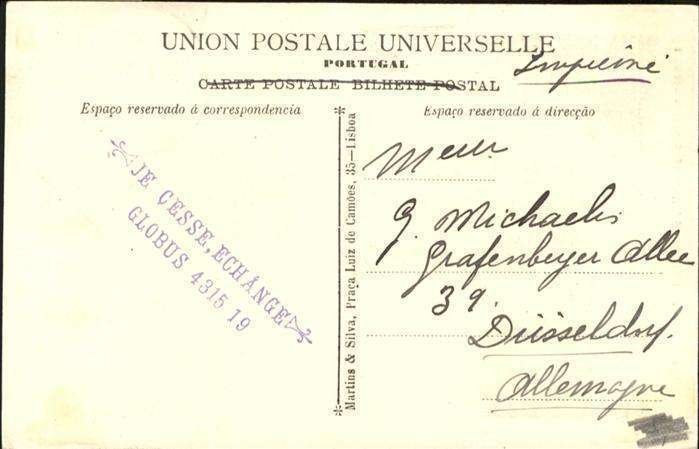 UNION POSTALE UNIVERSELLE
PORTUGAL
CARTE POSTALE BILHETE POSTAL
Imprimé
Espaço reservado á correspondencia
Espaço reservado á direcção
JE CESSE, ECHÁNGE
GLOBUS 4315 19
Martins & Silva, Praça Luiz de Camões, 35—Lisboa
G. Michaelis
Grafenberger Allee
39.
Düsseldorf.
Allemagne